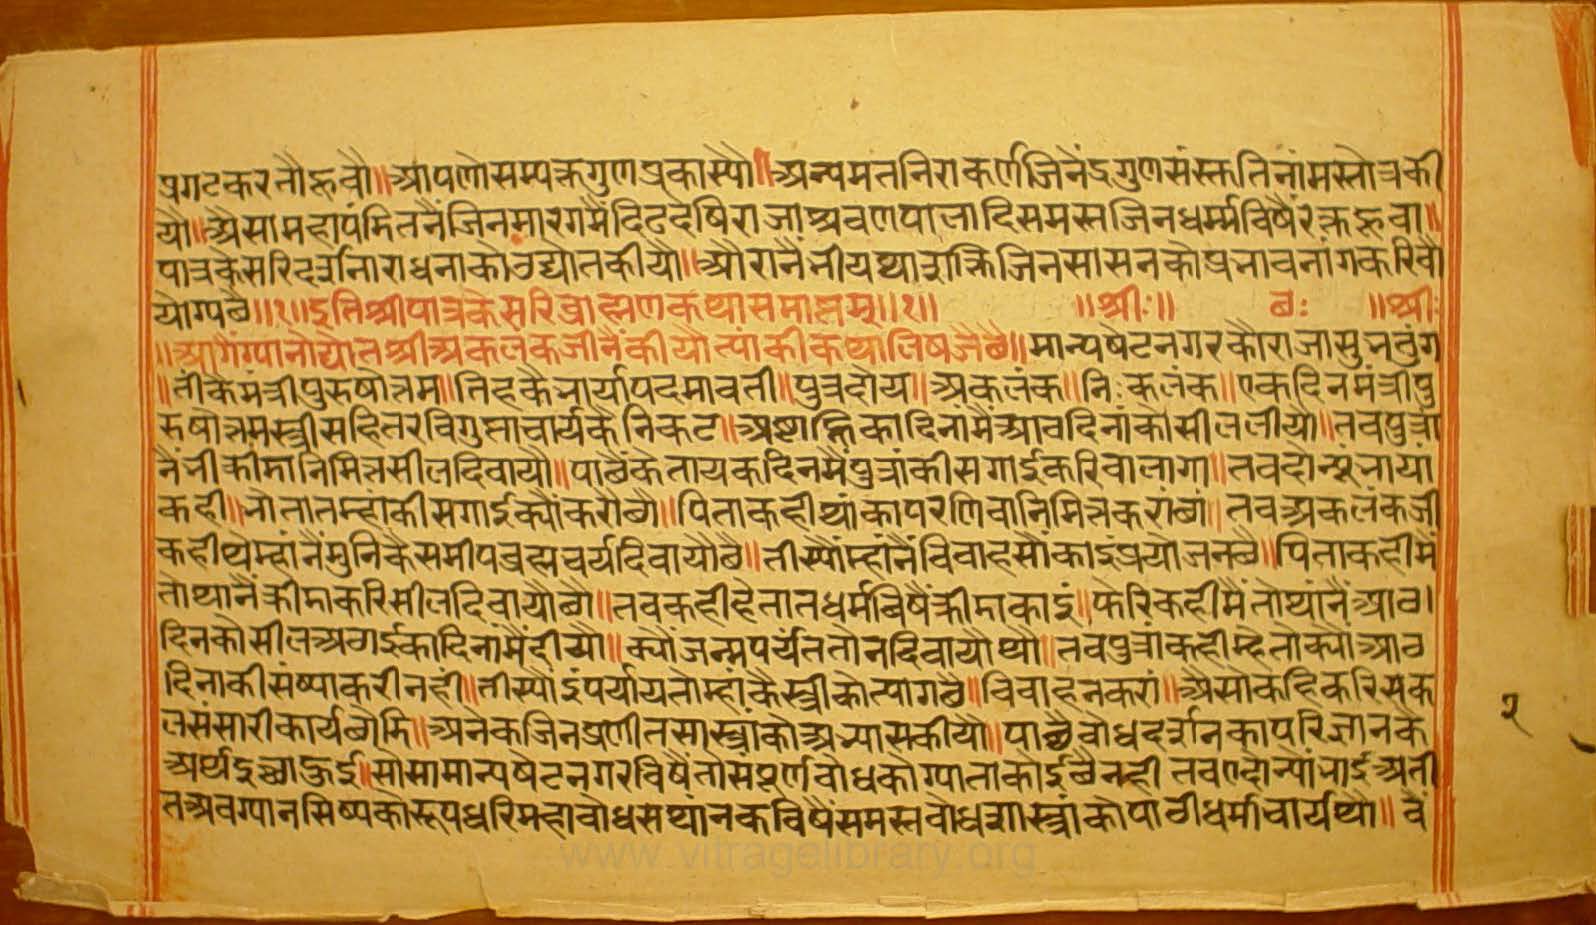 प्रगटकरतौहूवौ॥आपणोसम्यक्तगुणप्रकास्यौ॥अन्यमतनिराकर्णजिनेंद्रगुणसंस्तुतिनांमस्तोत्रकी
यौ॥अैसामहापंडितनैंजिनमारगमैंदिढदेषिराजाअवणपालादिसमस्तजिनधर्म्मविषैंरक्तहूवा॥
पात्रकेसरिदर्शनाराधनाकोउद्योतकीयौ॥औरानैंभीयथाशक्तिजिनसासनकोप्रभावनांगकरिवौ
योग्यछै॥१॥इतिश्रीपात्रकेसरिब्राह्मणकथासमाप्तम्॥१॥ ॥श्रीः॥ छः ॥श्रीः
॥आगैंग्यानोद्योतश्रीअकलकजीनैंकीयौत्यांकीकथालिषजैछै॥मान्यषेटनगरकौराजासुभतुंग
॥तींकैमंत्रीपुरुषोत्तम॥तिहकैभार्यापदमावती॥पुत्रदोय॥अकलंक॥निःकलंक॥एकदिनमंत्रीपु
रुषोत्तमस्त्रीसहितरविगुप्ताचार्यकैनिकट॥अष्टाह्निकादिनांमैंआठदिनांकोसीललीयो॥तवपुत्रां
नैंभीक्रीडानिमित्तसीलदिवायौ॥पाछैंकेतायकदिनमैंपुत्रांकीसगाईकरिवालागा॥तवदोन्यूंभायां
कही॥भोतातम्हांकीसगाईक्यौंकरौछौ॥पिताकहीथांकापरणिवानिमित्तकरांछां॥तवअकलंकजी
कहीथेम्हांनैंमुनिकैसमीपब्रह्मचर्यदिवायौछै॥तीस्यौंम्हांनैंविवाहसौंकांईप्रयोजनछै॥पिताकहीमैं
तोथानैंक्रीडाकरिसीलदिवायौछौ॥तवकहीहेतातधर्मविषैंक्रीडाकांई॥फेरिकहीमैंतोथांनैंआठ।
दिनकोसीलअठाईकादिनांमैंदीयौ॥क्योंजन्मपर्यंततोनदिवायौथो॥तवपुत्रांकहीम्हेतोक्यौंआठ
दिनाकीसंष्याकरीनहीं॥तीस्यौंइंपर्यायतोम्हांकैस्त्रीकोत्यागछै॥विवाहनकरां॥अैसौकहिकरिसक
लसंसारीकार्यछोडि॥अनेकजिनप्रणीतसास्त्रांकोअभ्यासकीयौ॥पाछैवोधदर्शनकापरिज्ञानकै
अर्थइच्छाऊई॥सोसामान्यषेटनगरविषैंतोसंपूर्णवोधकोग्याताकोईछैनही तवएदोन्यांभाईअती
तअवग्यानसिष्यकोरूपधरिमहावोधसथांनकविषैंसमस्तवोधशास्त्रांकोपाठीधर्माचार्यथौ॥वैं
२
www.vitragelibrary.org